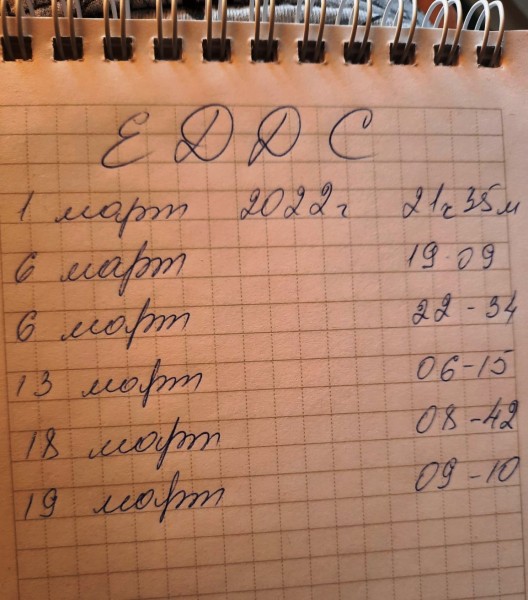 ЕДДС
1 март 2022г 21ч35м
6 март 19-09
6 март 22-34
13 март 06-15
18 март 08-42
19 март 09-10